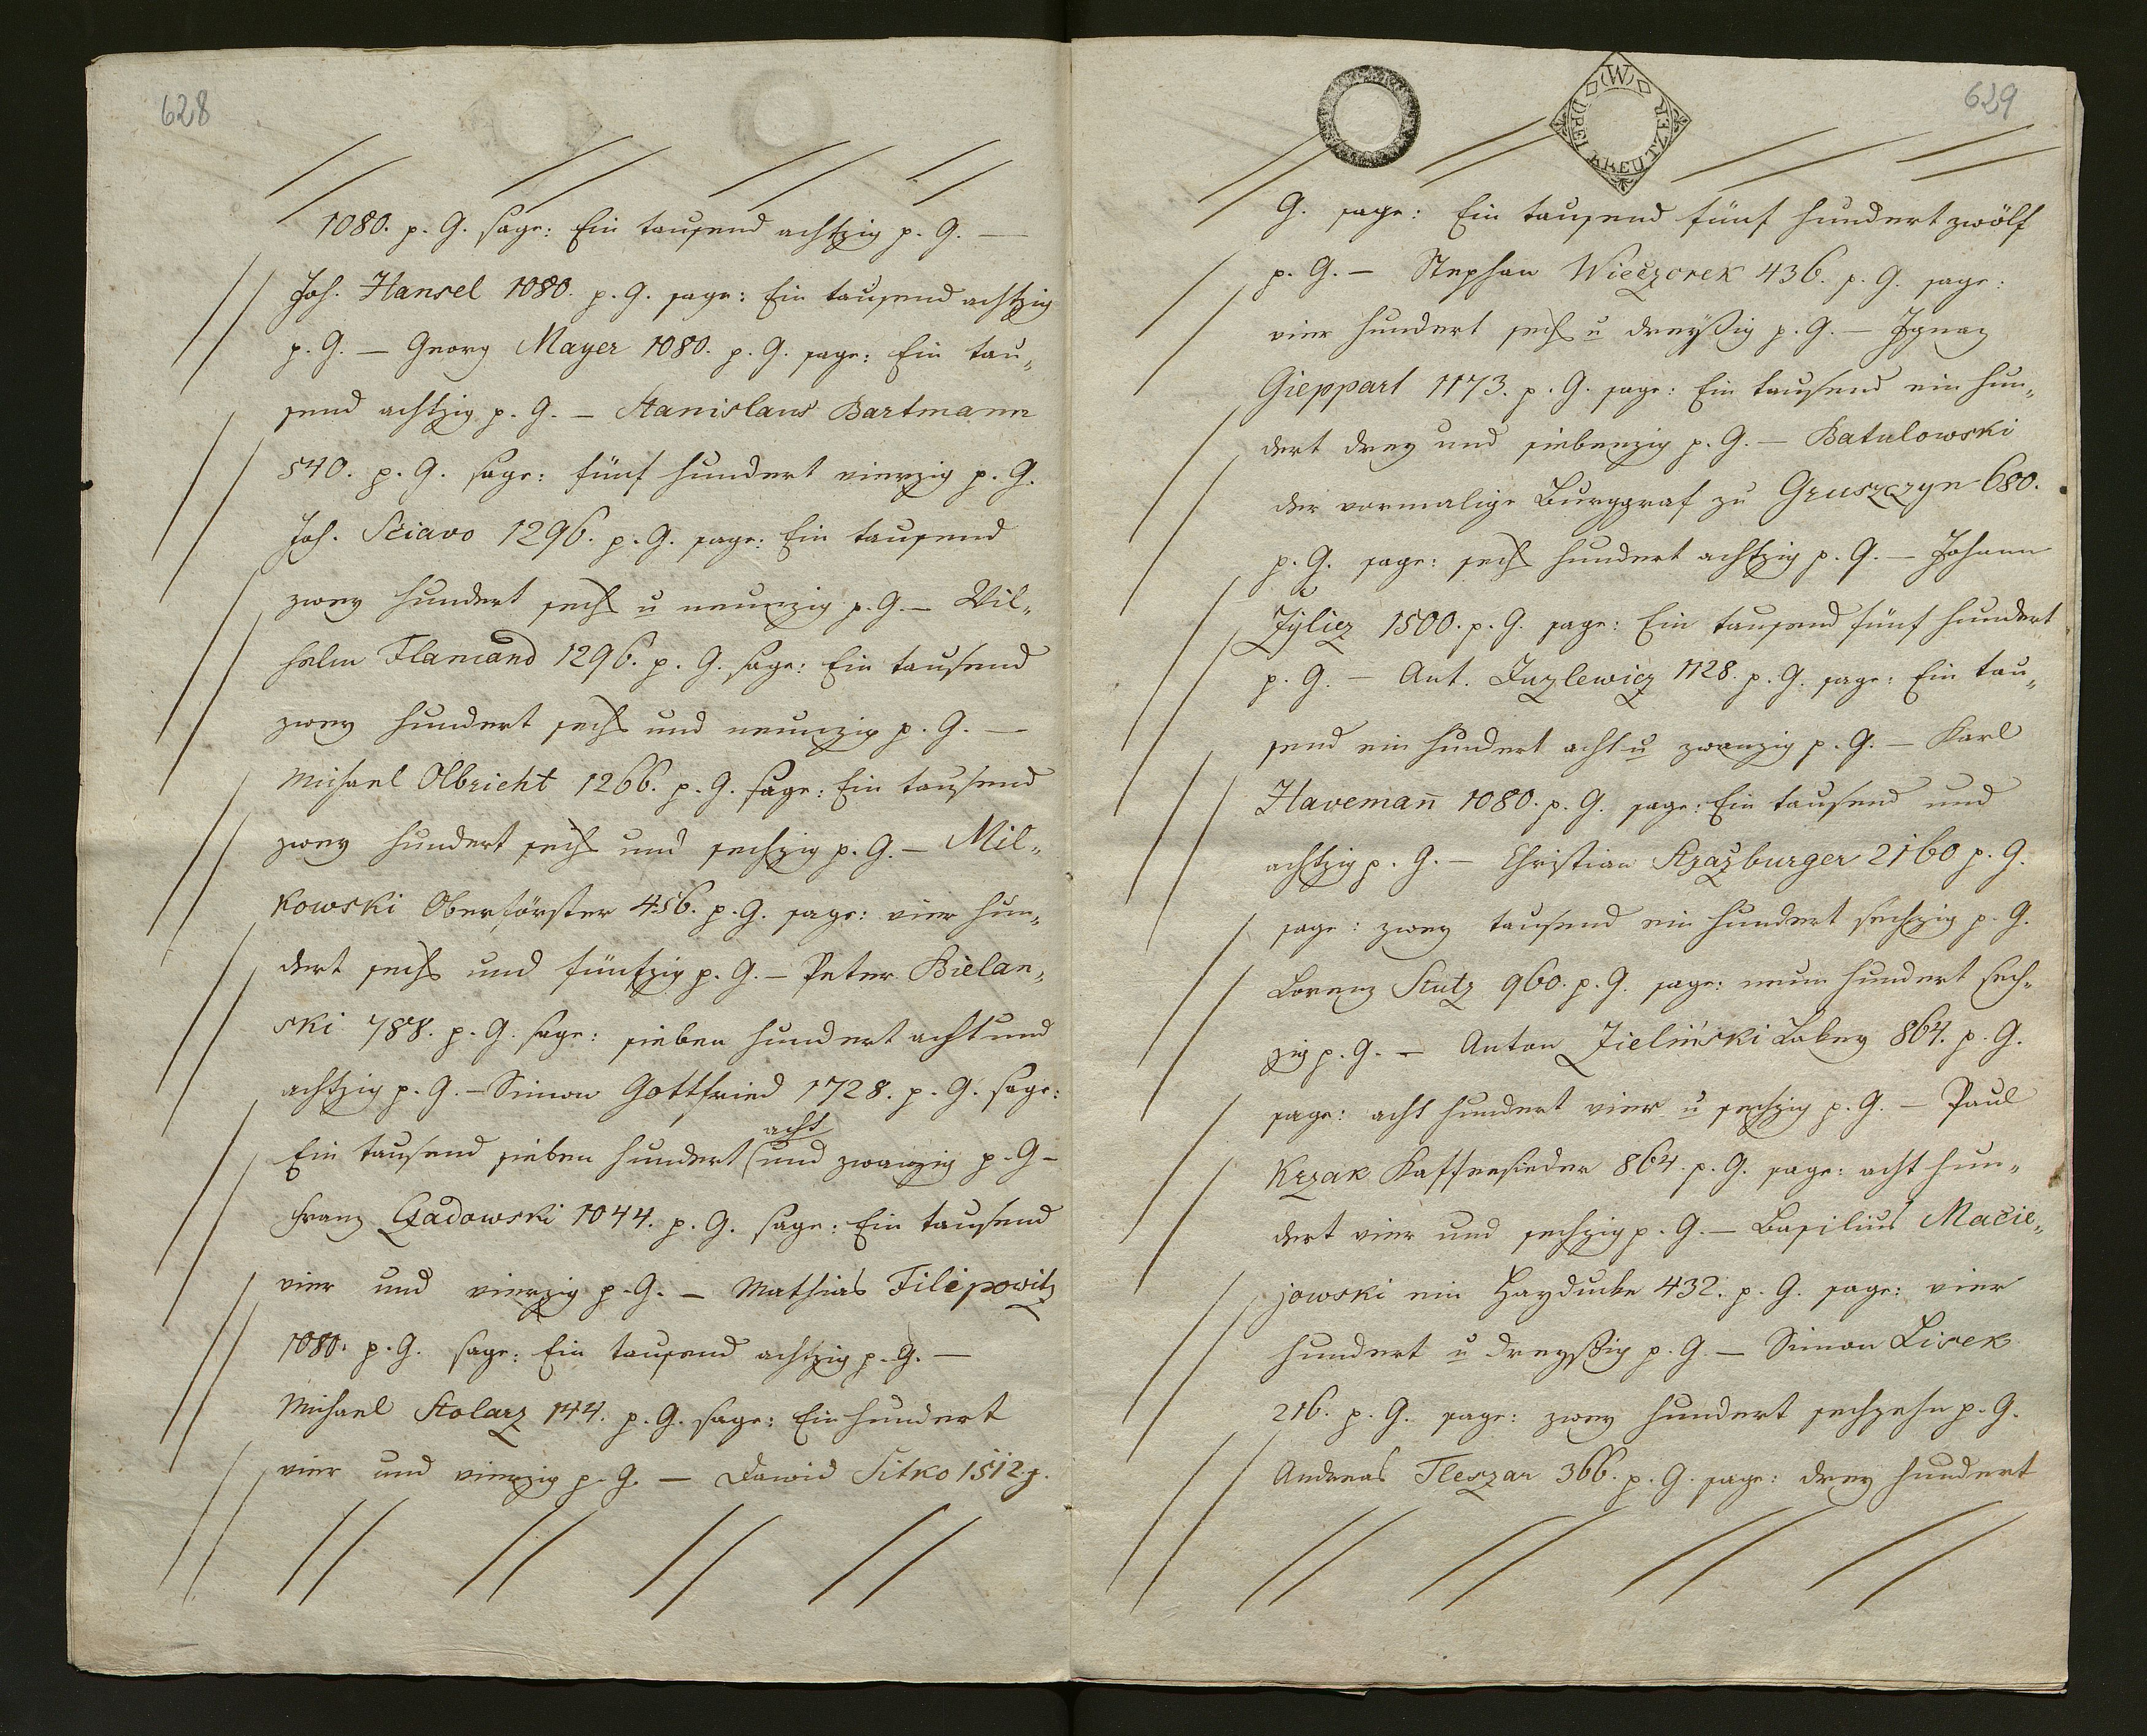 628
1080. p. G. sage: Ein tausend achtzig p. G. —
Joh. Hansel 1080. p. G. sage: Ein tausend achtzig
p. G. — Georg Mayer 1080. p. G. sage: Ein tau„
send achtzig p. G. — Stanislaus Bartmann
540. p. G. sage: fünf hundert vierzig p. G.
Joh. Sciavo 1296. p. G. sage: Ein tausend
zwey hundert sechs u neunzig p. G. — Wil„
helm Flamand 1296. p. G. sage: Ein tausend
zwey hundert sechs und neunzig p. G. —
Michael Olbricht 1266. p. G. sage: Ein tausend
zwey hundert sechs und sechzig p. G. — Mil„
kowski Oberförster 456. p. G. sage: vier hun„
dert sechs und fünfzig p. G. — Peter Bielan„
ski 788. p. G. sage: sieben hundert acht und
achtzig p. G. — Simon Gottfried 1728. p. G. sage:
acht
Ein tausend sieben hundert (und zwanzig p. G —
Franz Czadowski 1044. p. G. sage: Ein tausend
vier und vierzig p. G. — Mathias Filipowitz
1080. p. G. sage: Ein tausend achtzig p. G. —
Michael Stolarz 144. p. G. sage: Ein hundert
vier und vierzig p. G. — Dawid Sitko 1512. p.
629
W
DREI KREUTZER
G. sage: Ein tausend fünf hundert zwölf
p. G. — Stephan Wieczorek 436. p. G. sage:
vier hundert sechs u dreyßig p. G. — Ignaz
Gieppart 1173. p. G. sage: Ein tausend ein hun„
dert drey und siebenzig p. G. — Batulowski
der vormalige Burggraf zu Gruszczyn 680.
p. G. sage: sechs hundert achtzig p. G. — Johann
Żylicz 1500. p. G. sage: Ein tausend fünf hundert
p. G. — Ant. Juzlewicz 1128. p. G. sage: Ein tau„
send ein hundert acht u zwanzig p. G. — Karl
Havemañ 1080. p. G. sage: Ein tausend und
achtzig p. G. — Christian Strazburger 2160 p. G.
sage: zwey tausend ein hundert sechzig p. G.
Lorenz Stutz 960. p. G. sage: neun hundert sech„
zig p. G. — Anton Zieliński Lakey 864. p. G.
sage: acht hundert vier u sechzig p. G. — Paul
Krzak Kaffeesieder 864. p. G. sage: acht hun„
dert vier und sechzig p. G. — Basilius Macie„
jowski ein Hayducke 432. p. G. sage: vier
hundert u dreyßig p. G. — Simon Lisek
216. p. G. sage: zwey hundert sechzehn p. G.
Andreas Fleszar 366. p. G. sage: drey hundert